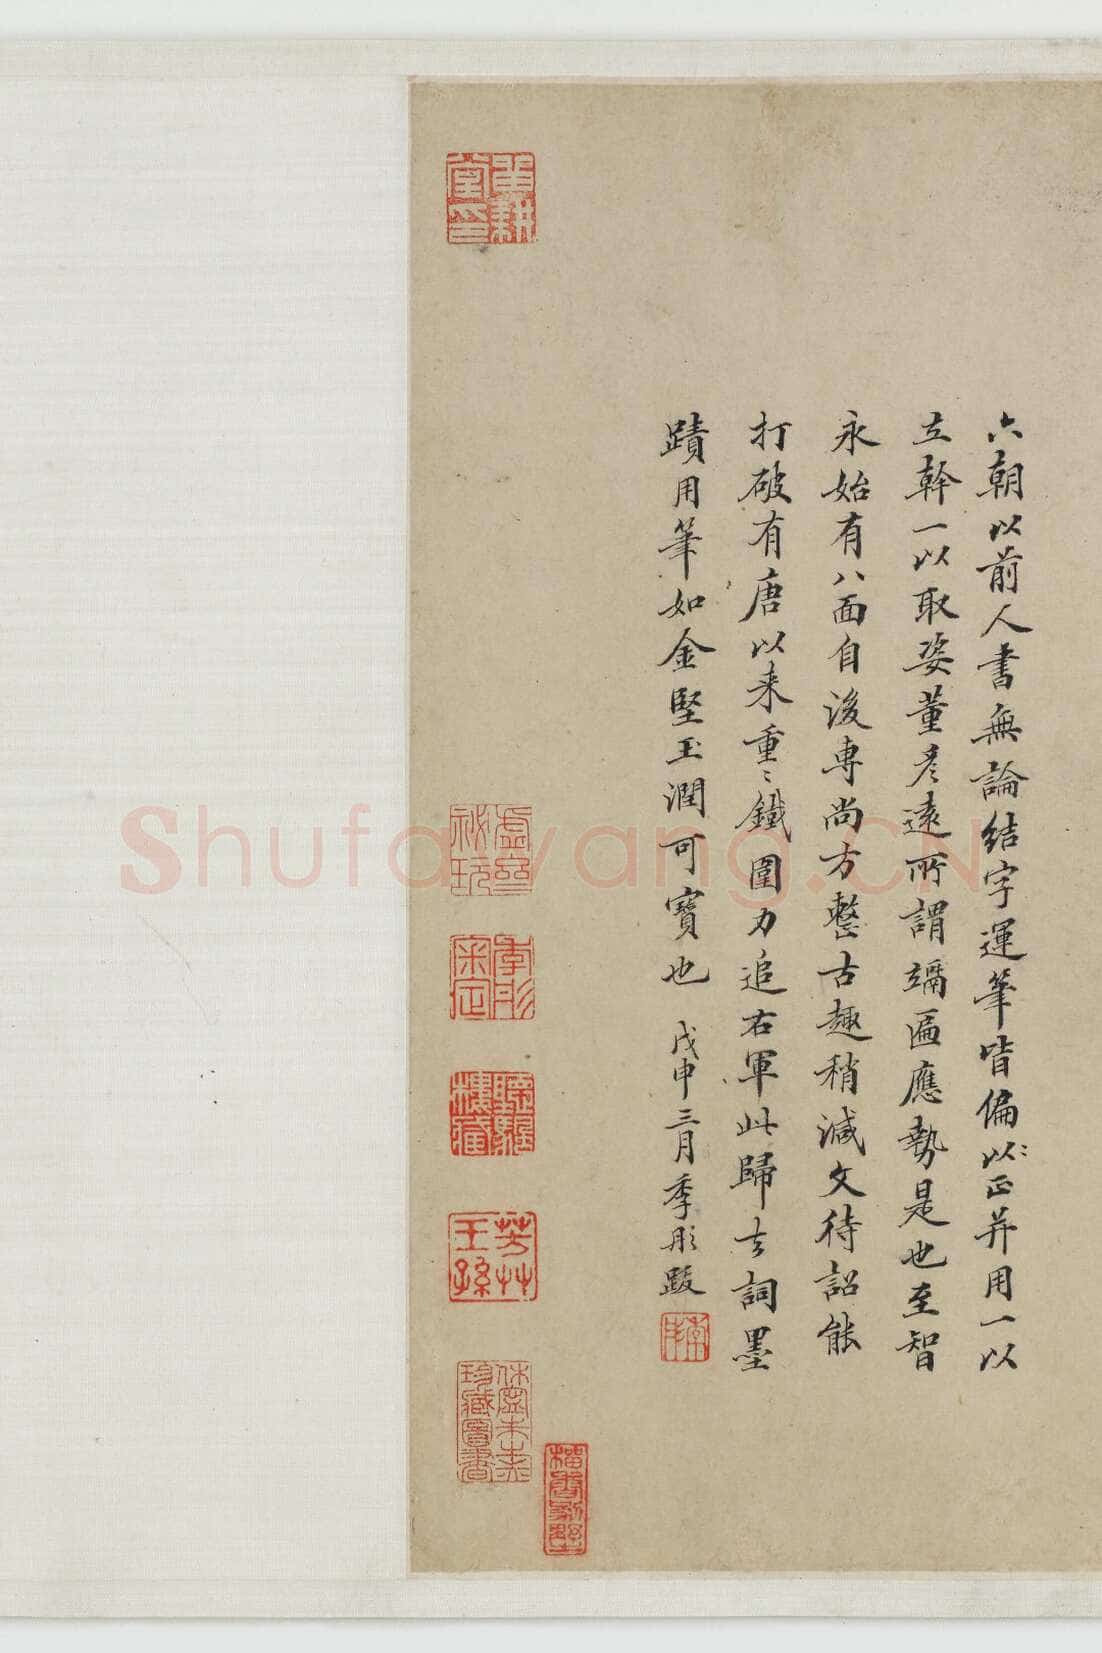 六朝以前人書無論結字運筆皆偏以〻正并用一以
立幹一以取姿董彦遠所謂譾匾應勢是也至智
永始有八面自後專尚方整古趣稍減文待詔能
打破有唐以来重〻鐵圍力追右軍此歸去詞墨
蹟用筆如金堅玉潤可寶也 戊申三月季彤跋
季彤審定
聽颿樓藏
芳艸王孫
Shufawang.CN